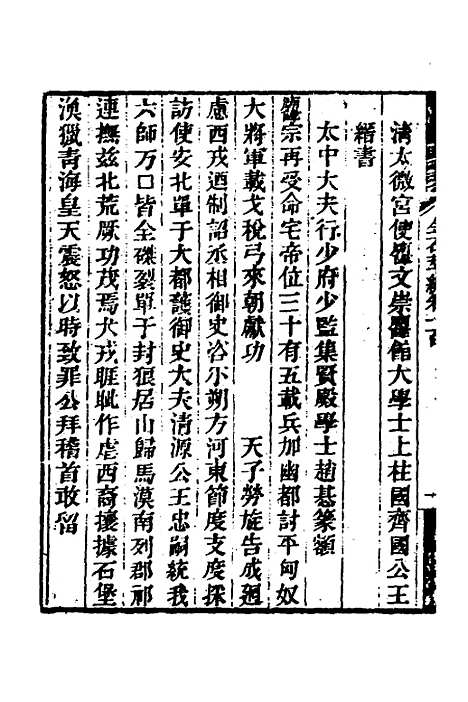 清太微宮使崇文崇館大學士上柱國齊國公王
縉書
太中大夫行少府少監集賢殿學士趙惎篆額
宗再受命宅帝位三十有五載兵加幽都討平匈奴
大將軍載戈稅弓來朝獻功　　天子勞旋告成迴
慮西戎迺制詔丞相御史咨尒朔方河東節度支度採
訪使安北單于大都護御史大夫清源公王忠嗣統我
六師万口皆全磔裂單于封狼居山歸馬漠南列郡祁
連撫兹北荒厥功茂焉犬戎睚眦作虐西裔攘據石堡
渙獵青海皇天震怒以時致罪公拜稽首敢留